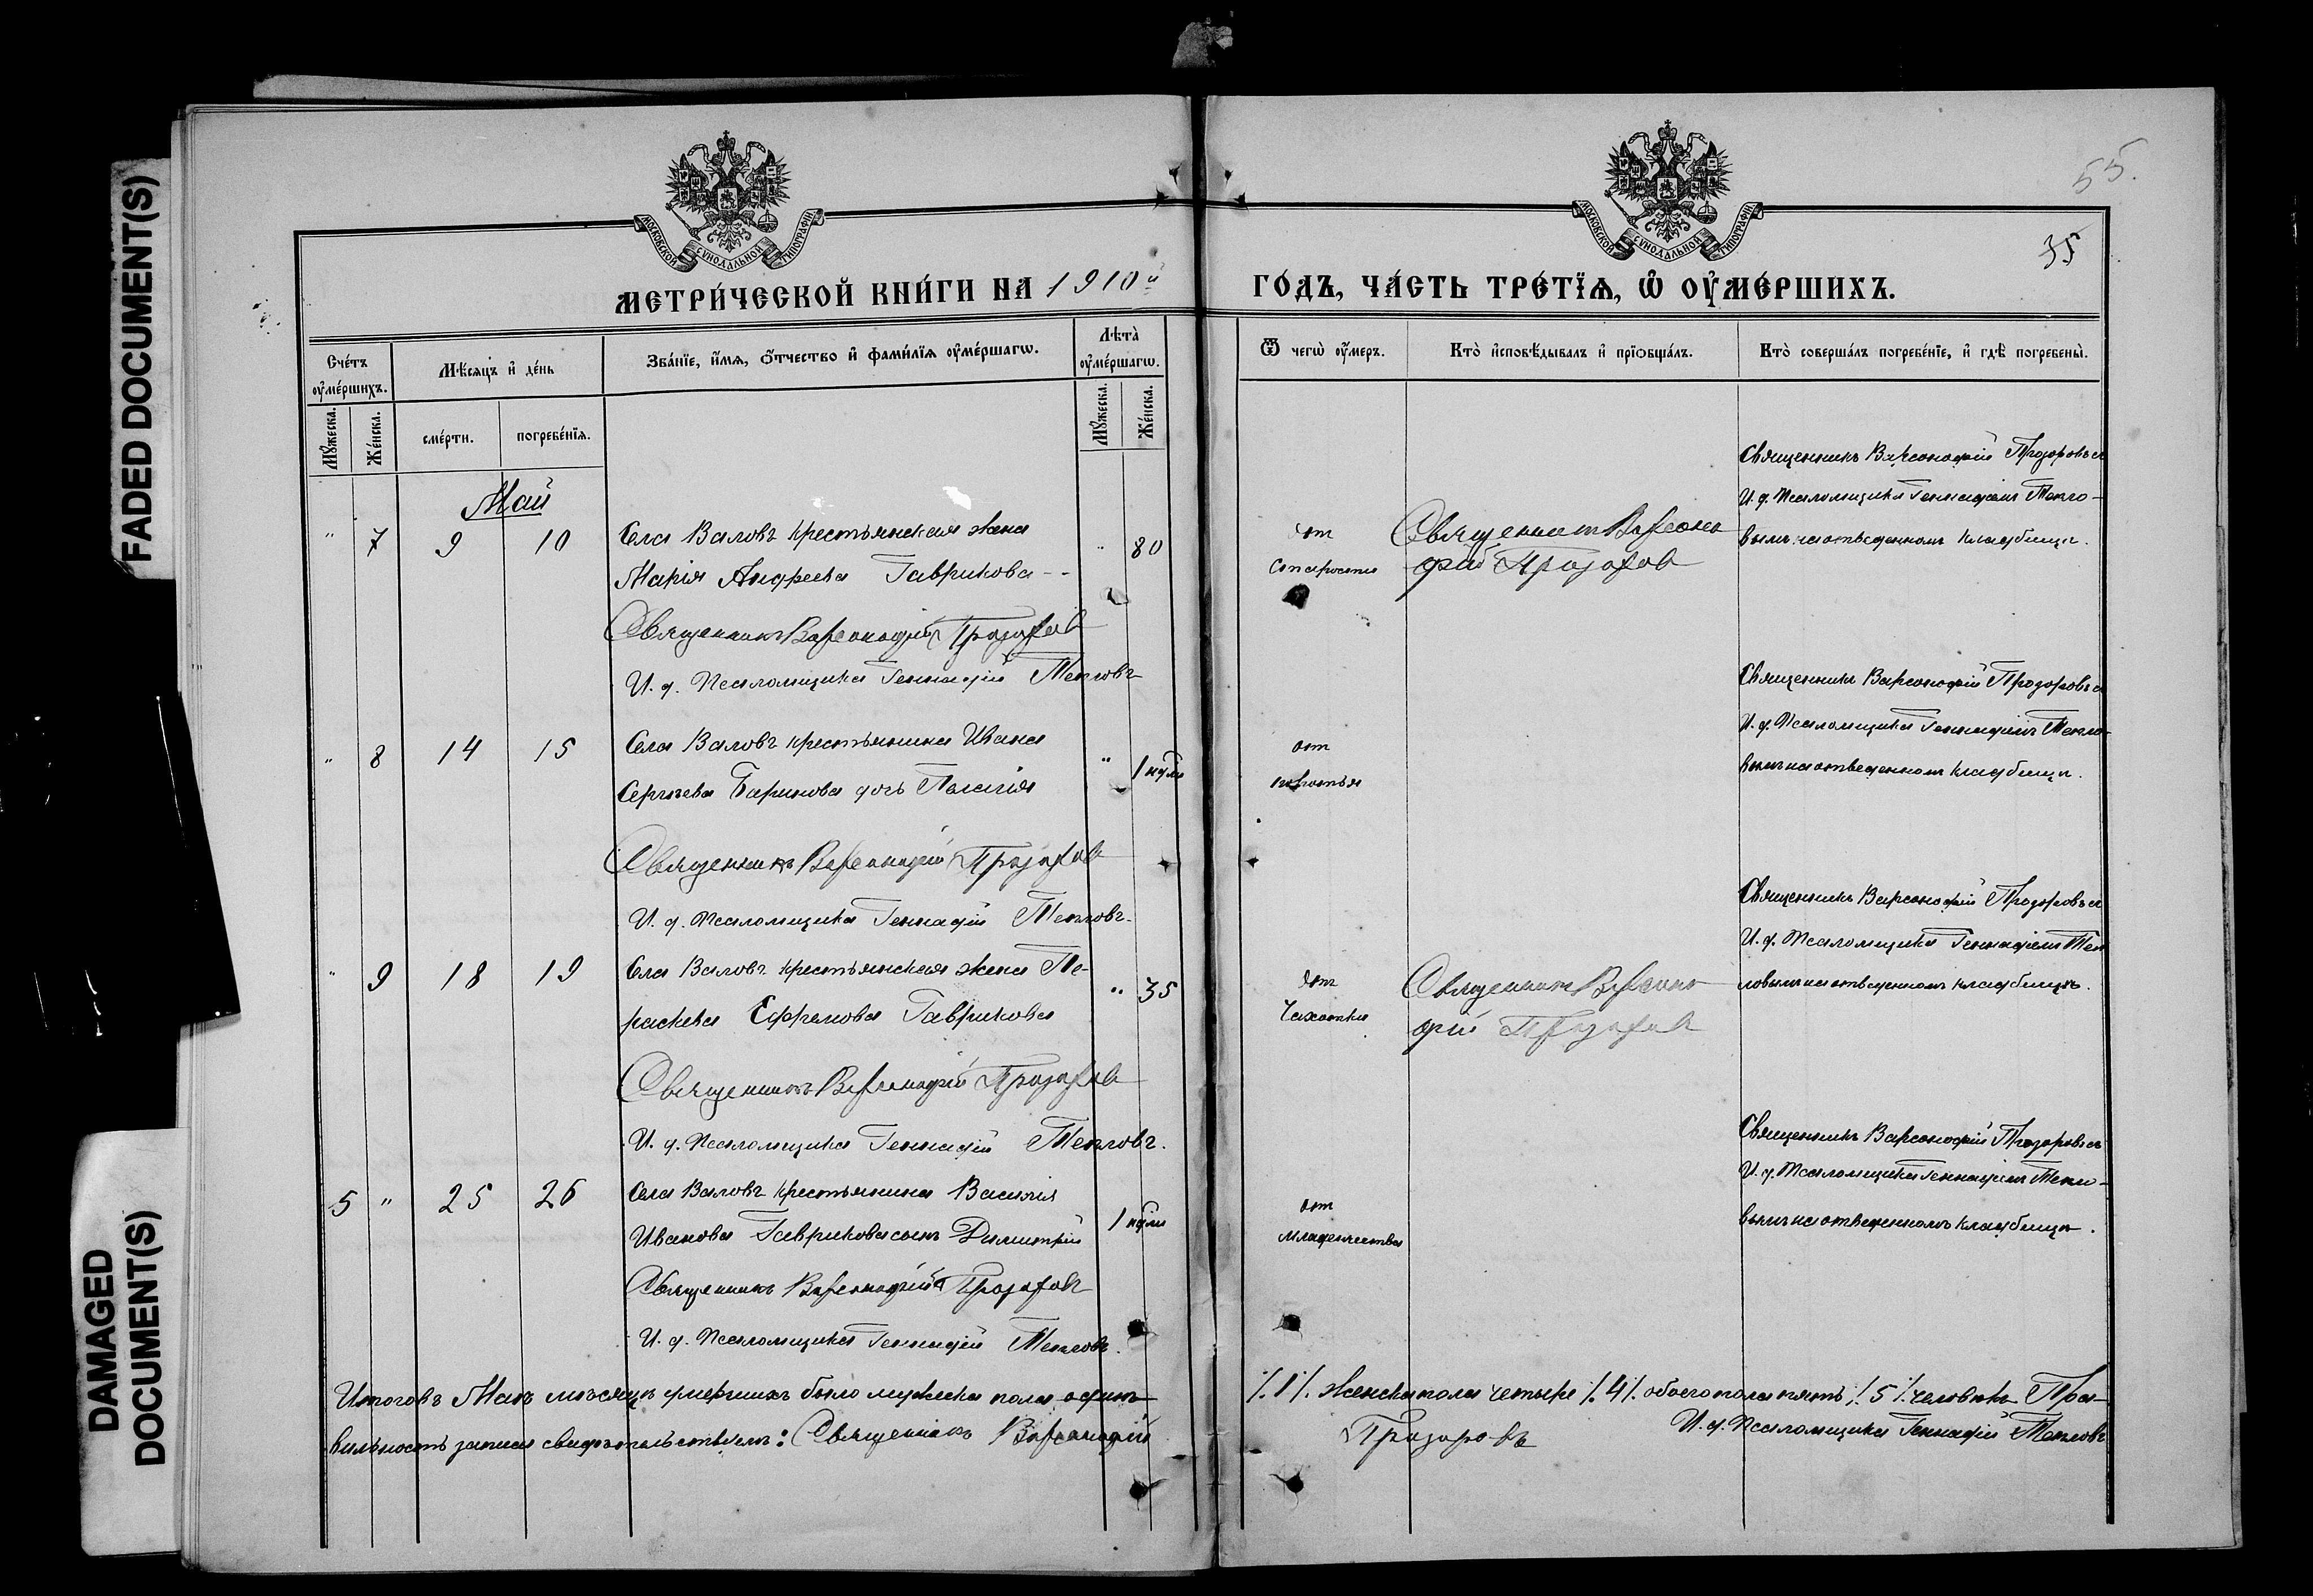 FADED DOCUMENT(S)
DAMAGED
DOCUMENT(S)
55.
35
МОСКОВСКОЙ СѴНОДАЛЬНОЙ ТИПОГРАФІИ
МОСКОВСКОЙ СѴНОДАЛЬНОЙ ТИПОГРАФІИ
МЕТРИ́ЧЕСКОЙ КНИ́ГИ НА 1910й
ГО́ДЪ, ЧА́СТЬ ТРЕ́ТІѦ, Ѡ ОУМЕ́РШИХЪ.
Сче́тъ оуме́ршихъ.
Мѣ́сяцъ и де́нь
Зва́нїе, и́мѧ, о́тчество и фами́лїѧ оуме́ршагѡ.
Лѣта̀ оуме́ршагѡ.
Ѿ чегѡ̀ оу́меръ.
Кто̀ исповѣ́дывалъ и прїобща́лъ.
Кто̀ соверша́лъ погребе́нїе, и гдѣ̀ погребены̀.
Му́жеска.
Же́нска.
сме́рти.
погребе́нїѧ.
Му́жеска.
Же́нска.
Май
" 7 9 10 Села Валовъ крестьянская жена " 80
Марія Андреева Гаврикова --
Священникъ Варсонофій Прозоровъ
И. д. Псаломщика Геннадій Тепловъ
отъ
старости
Священникъ Варсоно
фій Прозоровъ
Священникъ Варсонофій Прозоровъ съ
И. д. Псаломщика Геннадіемъ Тепло-
вымъ на отведенномъ кладбищѣ.
" 8 14 15 Села Валовъ крестьянина Ивана " 1 ндли
Сергѣева Барикова дочь Пелагія
Священникъ Варсонофій Прозоровъ
И. д. Псаломщика Геннадій Тепловъ.
отъ
Священникъ Варсонофій Прозоровъ съ
И. д. Псаломщика Геннадіемъ Тепло-
вымъ на отведенномъ кладбищѣ.
" 9 18 19 Села Валовъ крестьянская жена Па- " 35
раскева Ефремова Гаврикова
Священникъ Варсонофій Прозоровъ
И. д. Псаломщика Геннадій Тепловъ.
отъ
Чахотки
Священникъ Варсоно
фій Прозоровъ
Священникъ Варсонофій Прозоровъ съ
И. д. Псаломщика Геннадіемъ Теп
ловымъ на отведенномъ кладбищѣ.
5 " 25 26 Села Валовъ крестьянина Василія 1 ндли
Иванова Гаврикова сынъ Димитрій
Священникъ Варсонофій Прозоровъ
И. д. Псаломщика Геннадій Тепловъ.
отъ
младенчества
Священникъ Варсонофій Прозоровъ съ
И. д. Псаломщика Геннадіемъ Тепло-
вымъ на отведенномъ кладбищѣ.
Итого въ Маѣ мѣсяцѣ умершихъ было мужеска пола одинъ ⁒1⁒ женска пола четыре ⁒4⁒ обоего пола пять ⁒5⁒ человѣкъ Пра-
вильность записи свидѣтельствуемъ: Священникъ Варсонофій Прозоровъ И. д. Псаломщика Геннадій Тепловъ